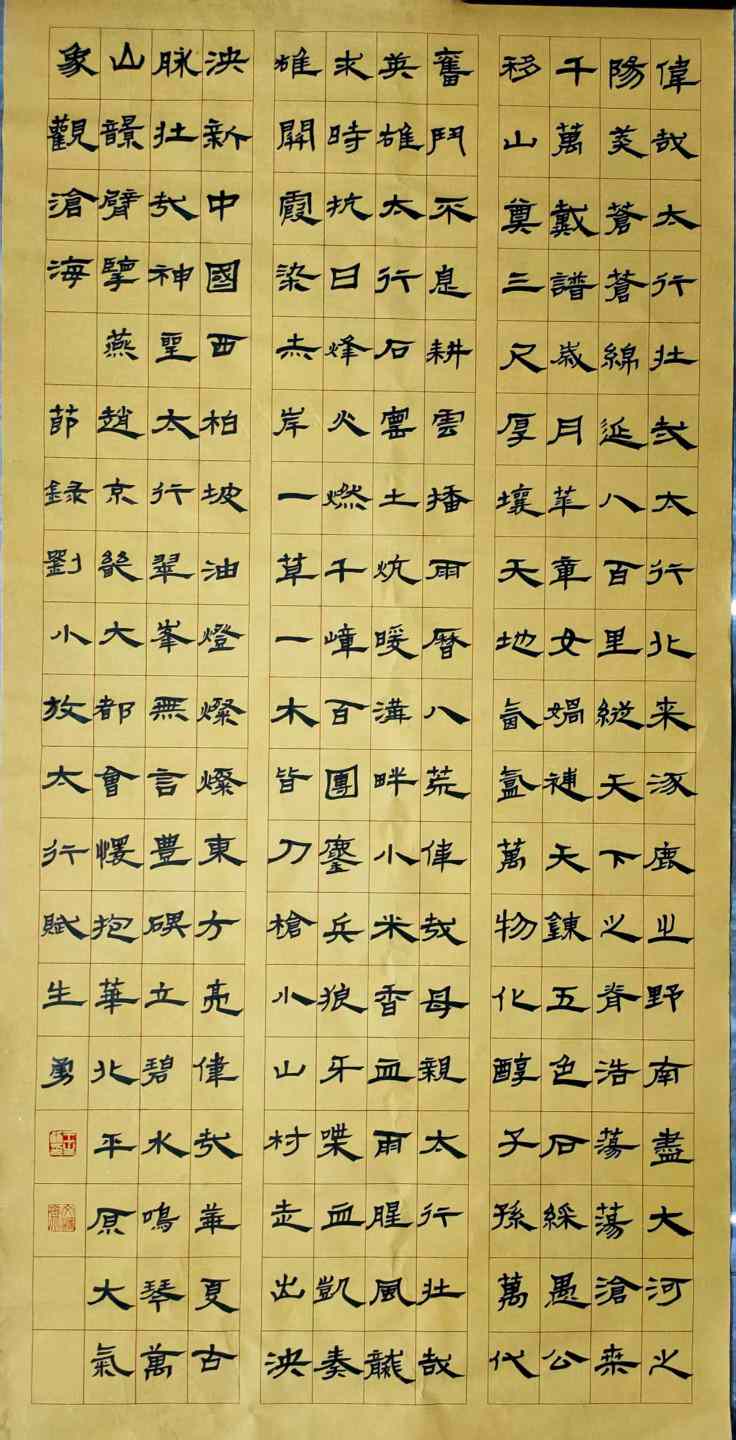 偉哉太行壮哉太行北来涿鹿之野南盡大河之
陽羙蒼蒼綿延八百里縱天下之脊浩蕩蕩滄桒
千萬戴譜歲月華章女媧補天鍊五色石綵愚公
移山奠三尺厚壤天地氤氳萬物化醇子孫萬代
奮鬥不息耕雲播雨曆八荒偉哉母親太行壮哉
英雄太行石窰土炕暖溝畔小米香血雨腥風龍
求時抗日烽火燃千嶂百團鏖兵狼牙喋血凱奏
雄關霞染赤岸一草一木皆刀槍小山村走出泱
泱新中國西柏坡油燈燦燦東方亮偉哉華夏古
脉壮哉神聖太行翠峯無言豊碑立碧水鳴琴萬
山韻臂擘燕趙京畿大都會懷抱華北平原大氣
象觀滄海 節録劉小放太行賦生勇